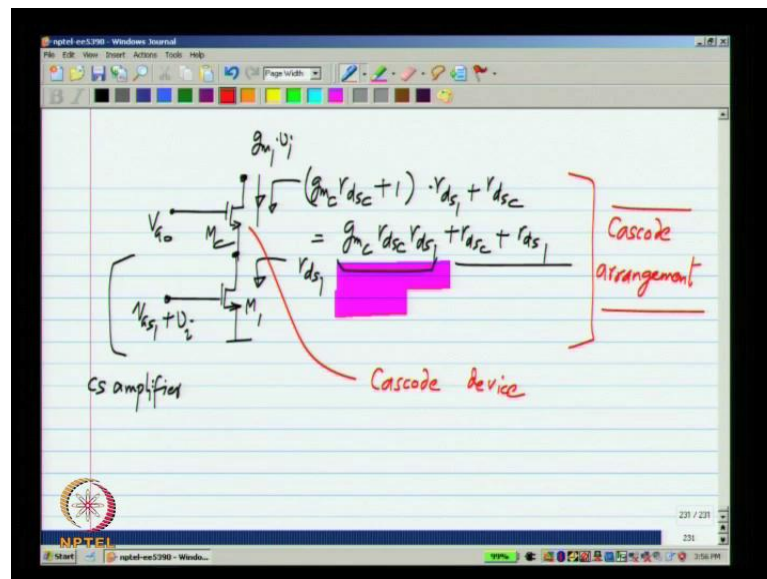 nptel-ee5390 - Windows Journal
File Edit View Insert Actions Tools Help
Page Width
g_m1 · v_i
(g_mc r_dsc + 1) · r_ds1 + r_dsc
= g_mc r_dsc r_ds1 + r_dsc + r_ds1
V_G0
M_c
r_ds1
V_GS1 + v_i
M_1
cs amplifier
Cascode device
Cascode
arrangement
NPTEL
231 / 231
231
Start
nptel-ee5390 - Windo...
99%
3:56 PM